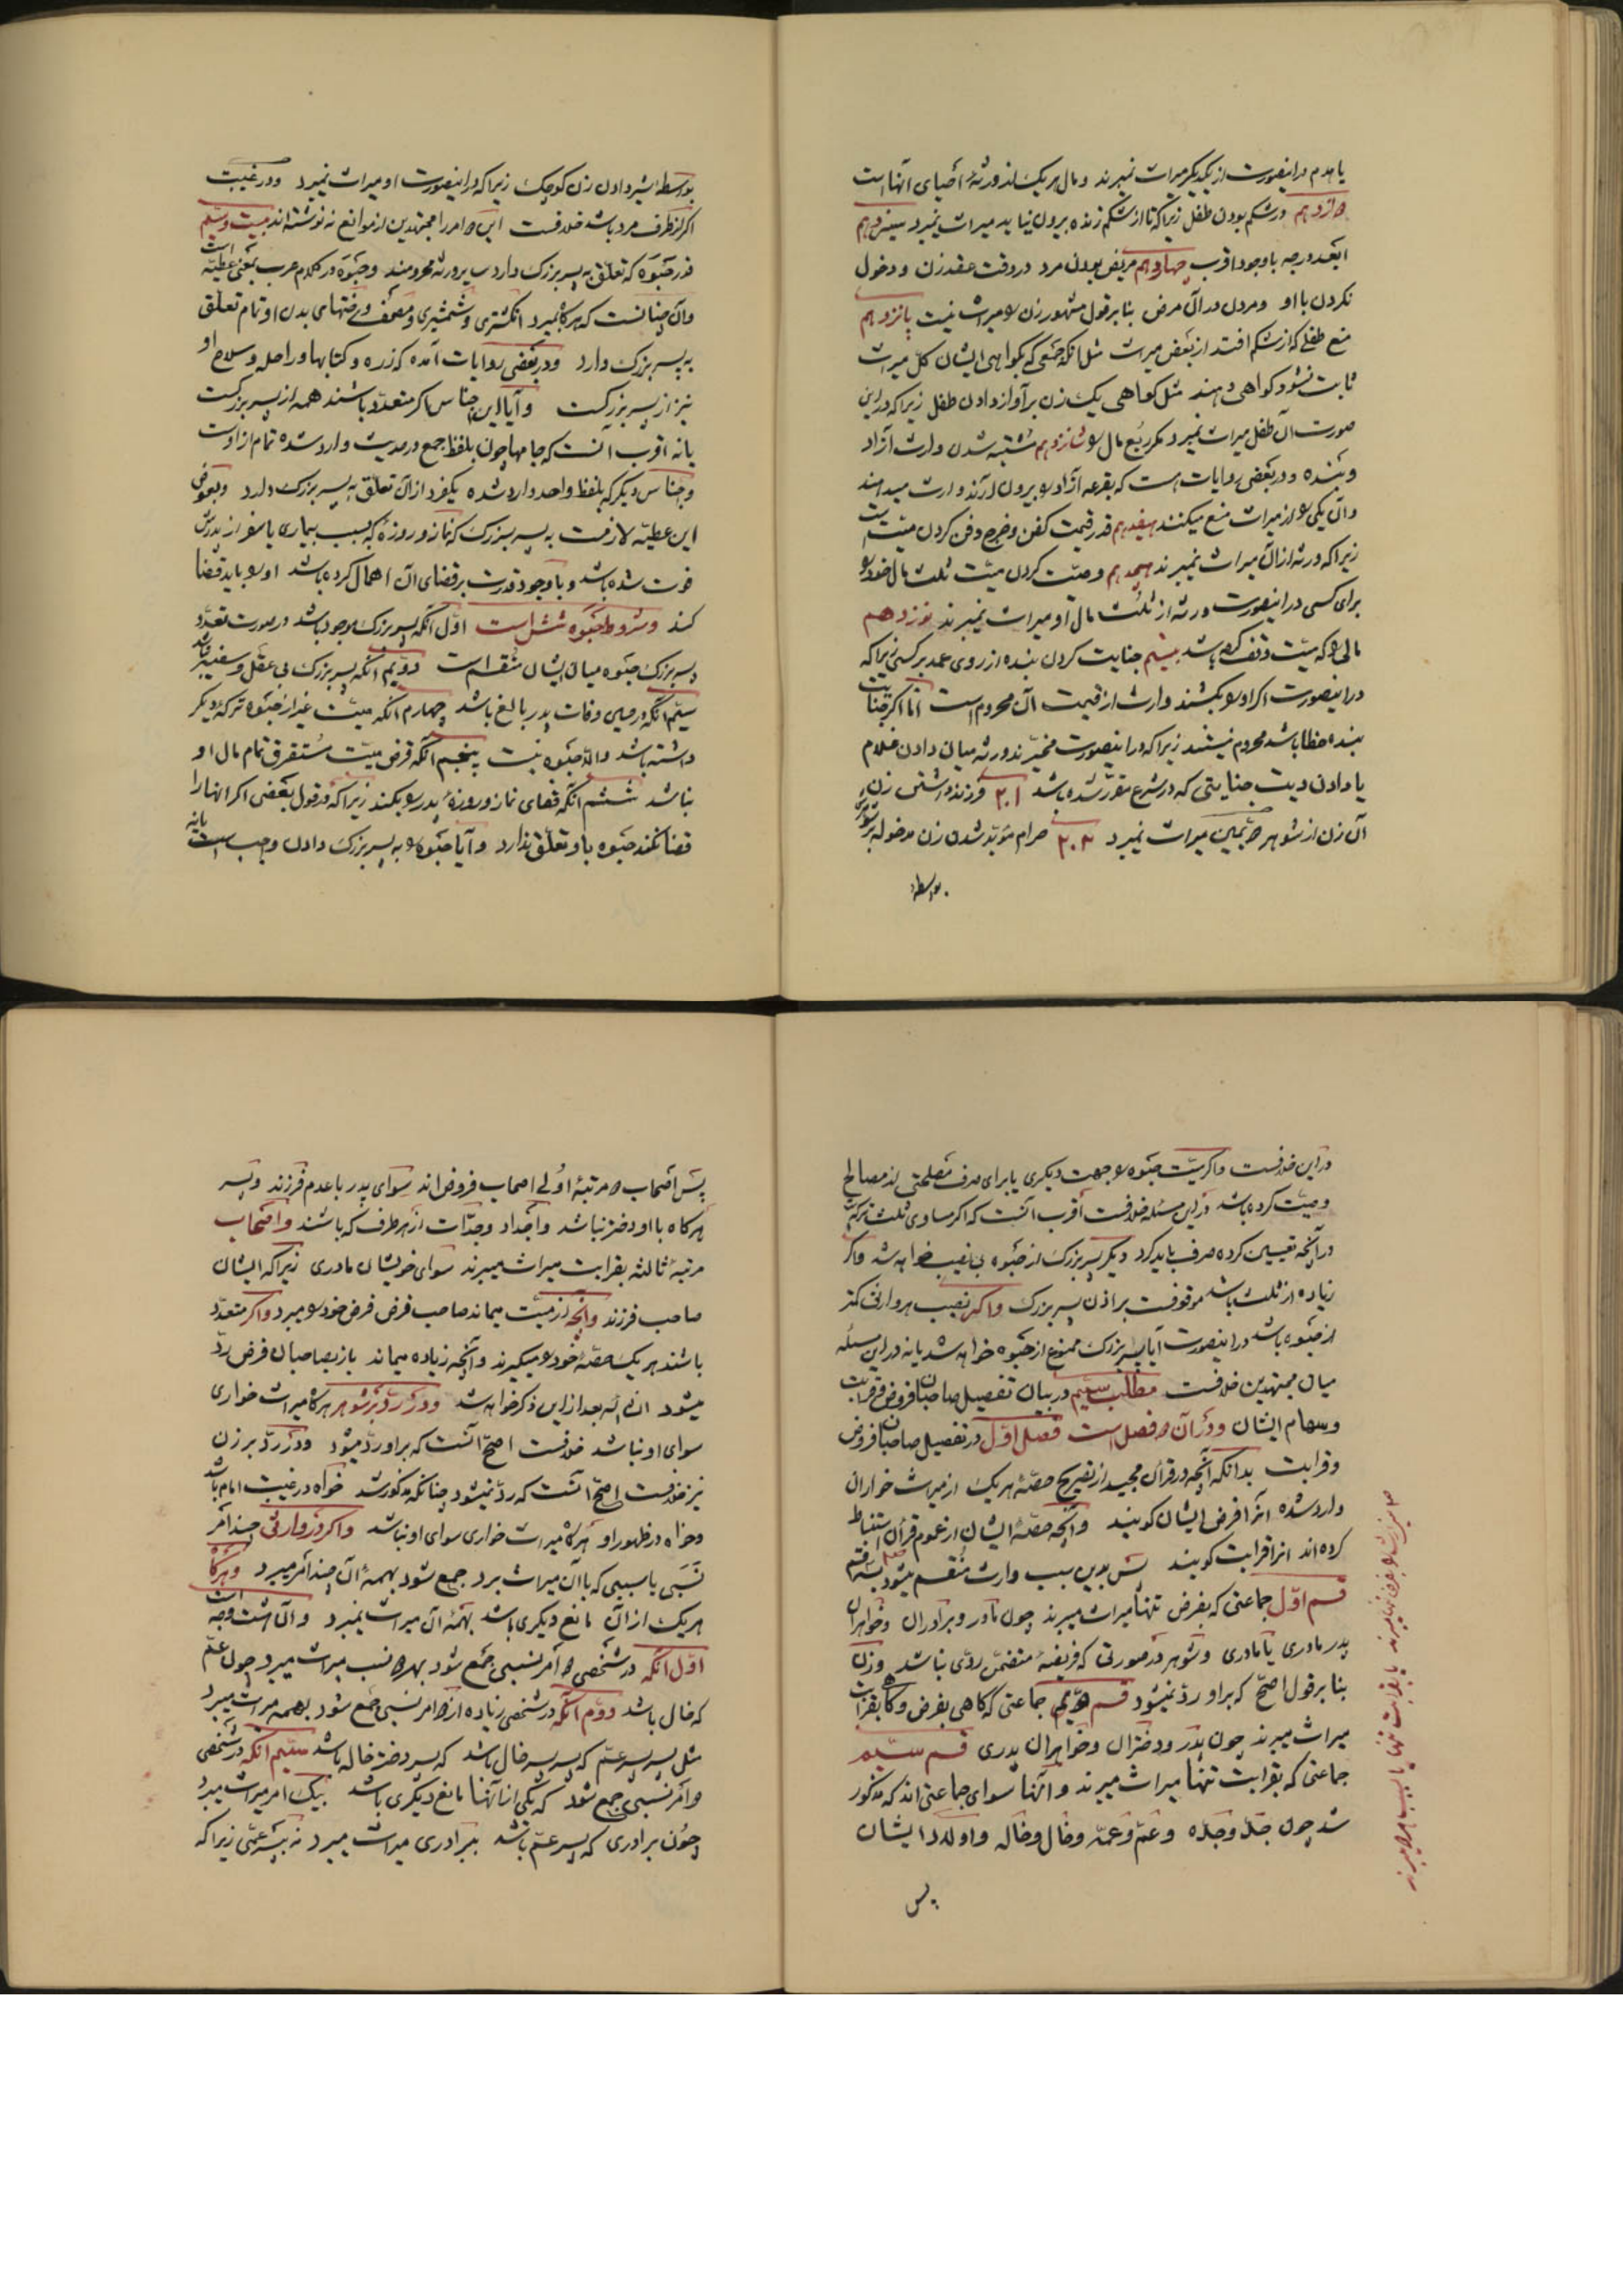 یا هدم در اینصورت از یکدیگر میراث نمیبرند و مال هر یک از ورثهٔ احیای آنها است
دوازدهم در شکم بودن طفل زیرا که تا از شکم زنده بیرون نیاید میراث نمیبرد سیزدهم
ابعد درجه با وجود اقرب چهاردهم مریض بودن مرد در وقت عقد زن و دخول
نکردن با او و مردن در آن مرض بنا بر قول مشهور زن را میراث نیست پانزدهم
منع طفلی که از شکم افتد از بعض میراث مثل آنکه جمعی که بگواهی ایشان کل میراث
ثابت نشود گواهی دهند مثل گواهی یک زن بر آواز دادن طفل زیرا که در این
صورت آن طفل میراث نمیبرد مگر ربع مال را شانزدهم مشتبه شدن وارث آزاد
و بنده و در بعضی روایات است که بقرعه آزاد را بیرون آرند و ارث میدهند
و آن یکی را از میراث منع میکنند هفدهم قدر قیمت کفن و خرج دفن کردن میت
زیرا که ورثه از آن میراث نمیبرند هیجدهم وصیت کردن میت ثلث مال خود را
برای کسی در اینصورت ورثه از ثلث مال او میراث نمیبرند نوزدهم
مالی را که میت وقف کرده باشد بیستم جنایت کردن بنده از روی عمد بر کسی زیرا که
در اینصورت اگر او را بکشند وارث از قیمت آن محروم است اما اگر جنایت
بنده خطا باشد محروم نیستند زیرا که در اینصورت مخیرند ورثه میان دادن غلام
یا دادن دیت جنایتی که در شرع مقرر شده باشد ۲۰۱ فرزند داشتن زن
آن زن از شوهر زمین میراث نمیبرد ۲۰۲ حرام مؤبد شدن زن مدخوله بر شوهر
بواسطه
بواسطه شیر دادن زن کوچک زیرا که در اینصورت او میراث نمیبرد و در غیبت
اگر از طرف مرد باشد خلافست این دو امر را مجتهدین از موانع نه نوشته‌اند بیست و سیم
قدر حبوه که تعلق به پسر بزرگ دارد پس ورثه محرومند و حبوه در کلام عرب بمعنی عطیه است
و آن چنانست که هرگاه بمیرد انگشتری و شمشیری و مصحف و رختهای بدن او تمام تعلق
به پسر بزرگ دارد و در بعضی روایات آمده که زره و کتابها و راحله و سلاح او
نیز از پسر بزرگست و آیا این اجناس اگر متعدد باشند همه از پسر بزرگست
یا نه اقرب آنست که جامها چون بلفظ جمع در حدیث وارد شده تمام از اوست
و اجناس دیگر که بلفظ واحد وارد شده یکفرد از آن تعلق به پسر بزرگ دارد و بعوض
این عطیه لازمست به پسر بزرگ که نماز و روزهٔ که بسبب بیماری یا سفر از پدرش
فوت شده باشد و با وجود قدرت بر قضای آن اهمال کرده باشد او را باید قضا
کند و شروط حبوه شش است اول آنکه پسر بزرگ موجود باشد در صورت تعدد
پسر بزرگ حبوه میان ایشان منقسم است دویم آنکه پسر بزرگ بی عقل و سفیه نباشد
سیم آنکه در حین وفات پدر بالغ باشد چهارم آنکه میت غیر از حبوه ترکهٔ دیگر
داشته باشد و الا حبوه نیست پنجم آنکه قرض میت مستغرق تمام مال او
نباشد ششم آنکه قضای نماز و روزهٔ پدر را بکند زیرا که در قول بعضی اگر آنها را
قضا نکند حبوه باو تعلق ندارد و آیا حبوه را به پسر بزرگ دادن واجب است یا نه
در این خلافست و اگر میت حبوه را جهت دیگری یا برای صرف مصلحتی از مصالح
وصیت کرده باشد در این مسئله خلافست اقرب آنست که اگر مساوی ثلث ترکه
در آنچه تعیین کرده صرف باید کرد دیگر پسر بزرگ از حبوه بی نصیب خواهد شد و اگر
زیاده از ثلث باشد موقوفست بر اذن پسر بزرگ و اگر نصیب هر وارثی کمتر
از حبوه باشد در اینصورت آیا پسر بزرگ ممنوع از حبوه خواهد شد یا نه در این مسئله
میان مجتهدین خلافست مطلب سیم در بیان تفصیل صاحبان فروض و قرابت
و سهام ایشان و در آن دو فصل است فصل اول در تفصیل صاحبان فروض
و قرابت بدانکه آنچه در قرآن مجید از تصریح حصهٔ هر یک از میراث خواران
وارد شده آنرا فرض ایشان گویند و آنچه حصهٔ ایشان از عموم قرآن استنباط
کرده‌اند آنرا قرابت گویند پس بدین سبب وارث منقسم میشود بسه قسم
قسم اول جماعتی که بفرض تنها میراث میبرند چون مادر و برادران و خواهران
پدر مادری یا مادری و شوهر در صورتی که فریضه متضمن ردی نباشد و زن
بنا بر قول اصح که بر او رد نمیشود قسم دویم جماعتی که گاهی بفرض و گاه بقرابت
میراث میبرند چون پدر و دختران و خواهران پدری قسم سیم
جماعتی که بقرابت تنها میراث میبرند و آنها سوای جماعتی‌اند که مذکور
شد چون جد و جده و عم و عمه و خال و خاله و اولاد ایشان
پس
پس اصحاب مرتبهٔ اولی اصحاب فروض‌اند سوای پدر با عدم فرزند و پسر
هرگاه با او دختر نباشد و اجداد و جدات از هر طرف که باشند و اصحاب
مرتبهٔ ثالثه بقرابت میراث میبرند سوای خویشان مادری زیرا که ایشان
صاحب فرزند و آنچه از میت میماند صاحب فرض فرض خود را میبرد و اگر متعدد
باشند هر یک حصهٔ خود را میگیرند و آنچه زیاده میماند باز بصاحبان فرض رد
میشود ان‌شاءالله بعد از این ذکر خواهد شد و در رد بر شوهر هرگاه میراث خواری
سوای او نباشد خلافست اصح آنست که بر او رد میشود و در رد بر زن
نیز خلافست اصح آنست که رد نمیشود چنانکه مذکور شد خواه در غیبت امام باشد
و خواه در ظهور او هرگاه میراث خواری سوای او نباشد و اگر در وارثی چند امر
نسبی یا سببی که با آن میراث برد جمع شود بهمهٔ آن چند امر میبرد و هرگاه
هر یک از آن مانع دیگری باشد بهمهٔ آن میراث نمیبرد و آن هشت وجه است
اول آنکه در شخصی دو امر نسبی جمع شود بهر دو نسب میراث میبرد چون عم
که خال باشد دوم آنکه در شخصی زیاده از دو امر نسبی جمع شود بهمه میراث میبرد
مثل پسر پسر عم که پسر پسر خال باشد که پسر دختر خاله باشد سیم آنکه در شخصی
دو امر نسبی جمع شود که یکی از آنها مانع دیگری باشد بیک امر میراث میبرد
چون برادری که پسر عم باشد ببرادری میراث میبرد نه بپسر عمی زیرا که